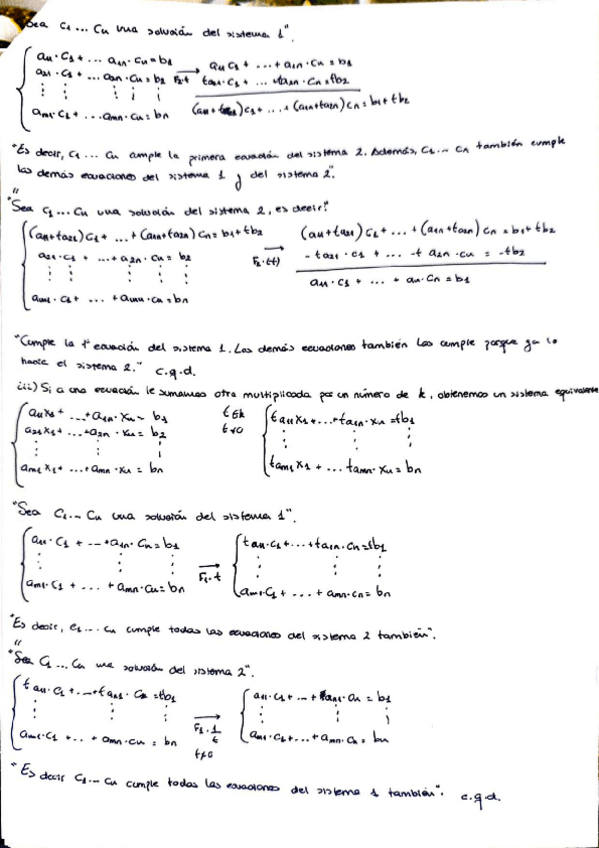 "Sea C1 ... Cn una solución del sistema 1".
a11·C1 + ... a1n·Cn = b1
a21·C1 + ... a2n·Cn = b2 → F2·t
am1·C1 + ... amn·Cn = bn
a11 C1 + ... + a1n·Cn = b1
ta21·C1 + ... + ta2n·Cn = tb2
(a11+ta21)C1 + ... + (a1n+ta2n)Cn = b1+tb2
"Es decir, C1 ... Cn cumple la primera ecuación del sistema 2. Además, C1 ... Cn también cumple
las demás ecuaciones del sistema 1 y del sistema 2".
"Sea C1 ... Cn una solución del sistema 2, es decir:
(a11+ta21)C1 + ... + (a1n+ta2n)Cn = b1+tb2
a21·C1 + ... + a2n·Cn = b2
am1·C1 + ... + amn·Cn = bn
(a11+ta21)C1 + ... + (a1n+ta2n)Cn = b1+tb2
-ta21·C1 + ... -t a2n·Cn = -tb2
a11·C1 + ... + an·Cn = b1
"Cumple la 1ª ecuación del sistema 1. Las demás ecuaciones también las cumple porque ya lo
hacía el sistema 2." c.q.d.
iii) Si a una ecuación le sumamos otra multiplicada por un número de k, obtenemos un sistema equivalente
a11x1 + ... + a1n·xn = b1
a21x1 + ... + a2n·xn = b2
am1x1 + ... + amn·xn = bn
t∈k
t≠0
ta11x1 + ... + ta1n·xn = tb1
tam1x1 + ... tamn·xn = bn
"Sea C1 ... Cn una solución del sistema 1".
a11·C1 + ... + a1n·Cn = b1
am1·C1 + ... + amn·Cn = bn
F1·t
ta11·C1 + ... + ta1n·Cn = tb1
am1·C1 + ... + amn·Cn = bn
"Es decir, C1 ... Cn cumple todas las ecuaciones del sistema 2 también".
"Sea C1 ... Cn una solución del sistema 2".
ta11·C1 + ... + ta1n·Cn = tb1
am1·C1 + ... + amn·Cn = bn
F1·1/t
t≠0
a11·C1 + ... + a1n·Cn = b1
am1·C1 + ... + amn·Cn = bn
"Es decir C1 ... Cn cumple todas las ecuaciones del sistema 1 también". c.q.d.